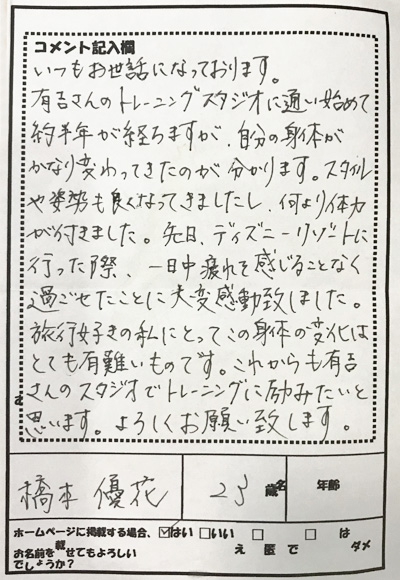 コメント記入欄
いつもお世話になっております。
有吉さんのトレーニングスタジオに通い始めて
約半年が経ちますが、自分の身体が
かなり変わってきたのが分かります。スタイル
や姿勢も良くなってきましたし、何より体力
が付きました。先日、ディズニーリゾートに
行った際、一日中疲れを感じることなく
過ごせたことに大変感動致しました。
旅行好きの私にとってこの身体の変化は
とても有難いものです。これからも有吉
さんのスタジオでトレーニングに励みたいと
思います。よろしくお願い致します。
橋本 優花 23 歳 名 年齢
ホームページに掲載する場合、☑はい □いい □ □ は
載
お名前を せてもよろしい え 匿 で ダメ
でしょうか?